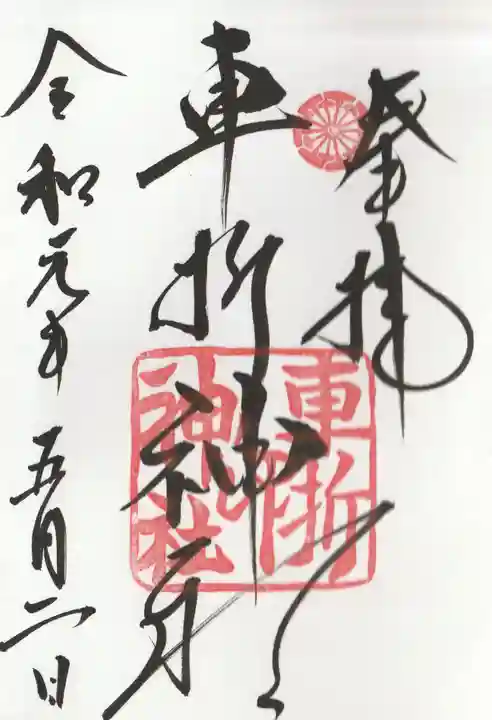 奉拝
車折神社
令和元年五月二日
車折
神社